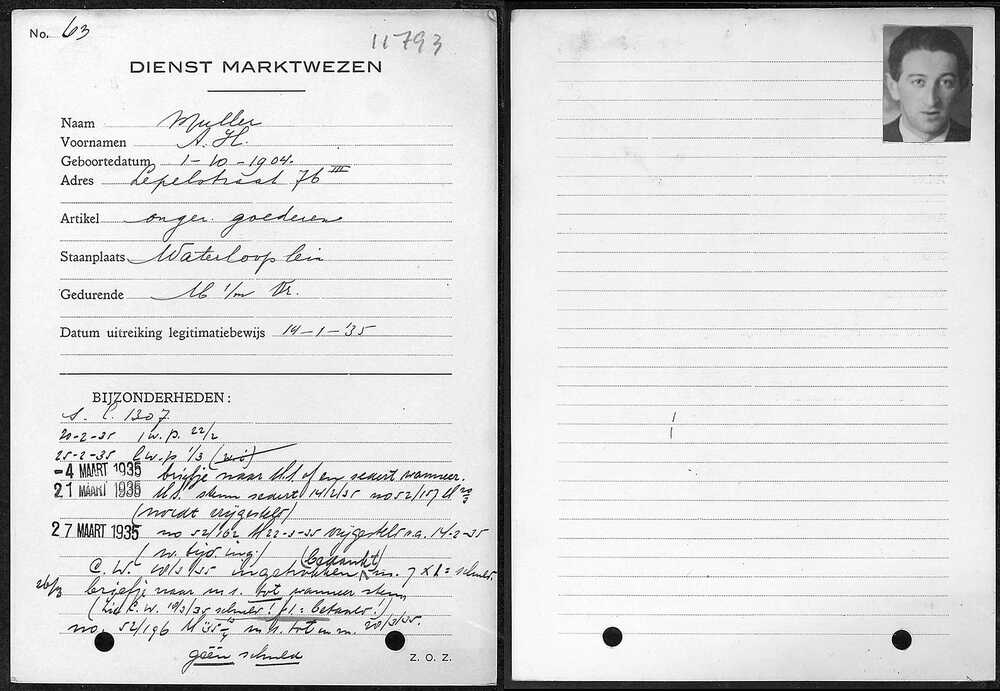 No. 63
11793
DIENST MARKTWEZEN
Naam Muller
Voornamen A. H.
Geboortedatum 1-10-1904.
Adres Lepelstraat 76 III
Artikel onger. goederen
Staanplaats Waterlooplein
Gedurende M t/m Vr.
Datum uitreiking legitimatiebewijs 14-1-'35
BIJZONDERHEDEN:
S. C. 1307.
20-2-35 1 w.p. 22/2
25-2-35 w.p 1/3
-4 MAART 1935 briefje naar M.S. of en sedert wanneer.
21 MAART 1935 M.S. steun sedert 14/2/35 no 52/157 M 20/3
(wordt vrijgesteld)
27 MAART 1935 no 52/162 M 22-3-35 vrijgesteld v.a. 14-2-35
(w. bijdr. ing.)
C. W. 10/3 35 ingetrokken (bedankt) m. 7 x 1 = schuld.
26/3 briefje naar m s. tot wanneer steun
(Zie C. W. 10/3/35 schuld! f 1 = betaald!)
no. 52/196 M m s. tot m. 20/3/35.
geen schuld
Z. O. Z.